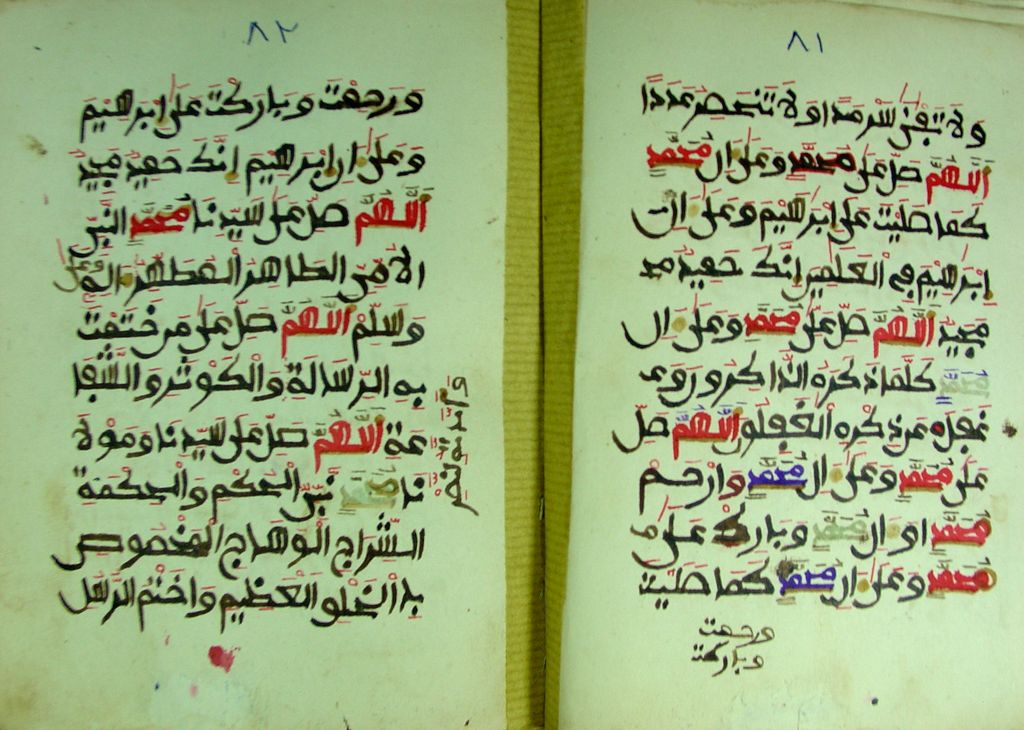 ٨١
ولا تفنى سرمدا ولا تنحصر عددا
اللهم صل على محمد وعلى ال محمد
كما صليت على ابرهيم وعلى ال
ابرهيم في العلمين انك حميد
مجيد اللهم صل على محمد وعلى ال
محمد كلما ذكره الذاكرون و
غفل عن ذكره الغفلو اللهم صل
على محمد وعلى ال محمد وارحم
محمد او ال محمد وبارك على
محمد وعلى ال محمد كما صليت
ورحمت
وباركت
٨٢
ورحمت وباركت على ابرهيم
وعلى ال ابرهيم انك حميد مجيد
اللهم صل على سيدنا محمد النبي
الامي الطاهر المطهر وعلى اله
وسلم اللهم صل على من ختمت
به الرسالة والكوثر والشفا
عة اللهم صل على سيدنا ومولا
نا محمد نبي الحكم والحكمة
السراج الوهاج المخصوص
بالخلو العظيم واختم الرسل